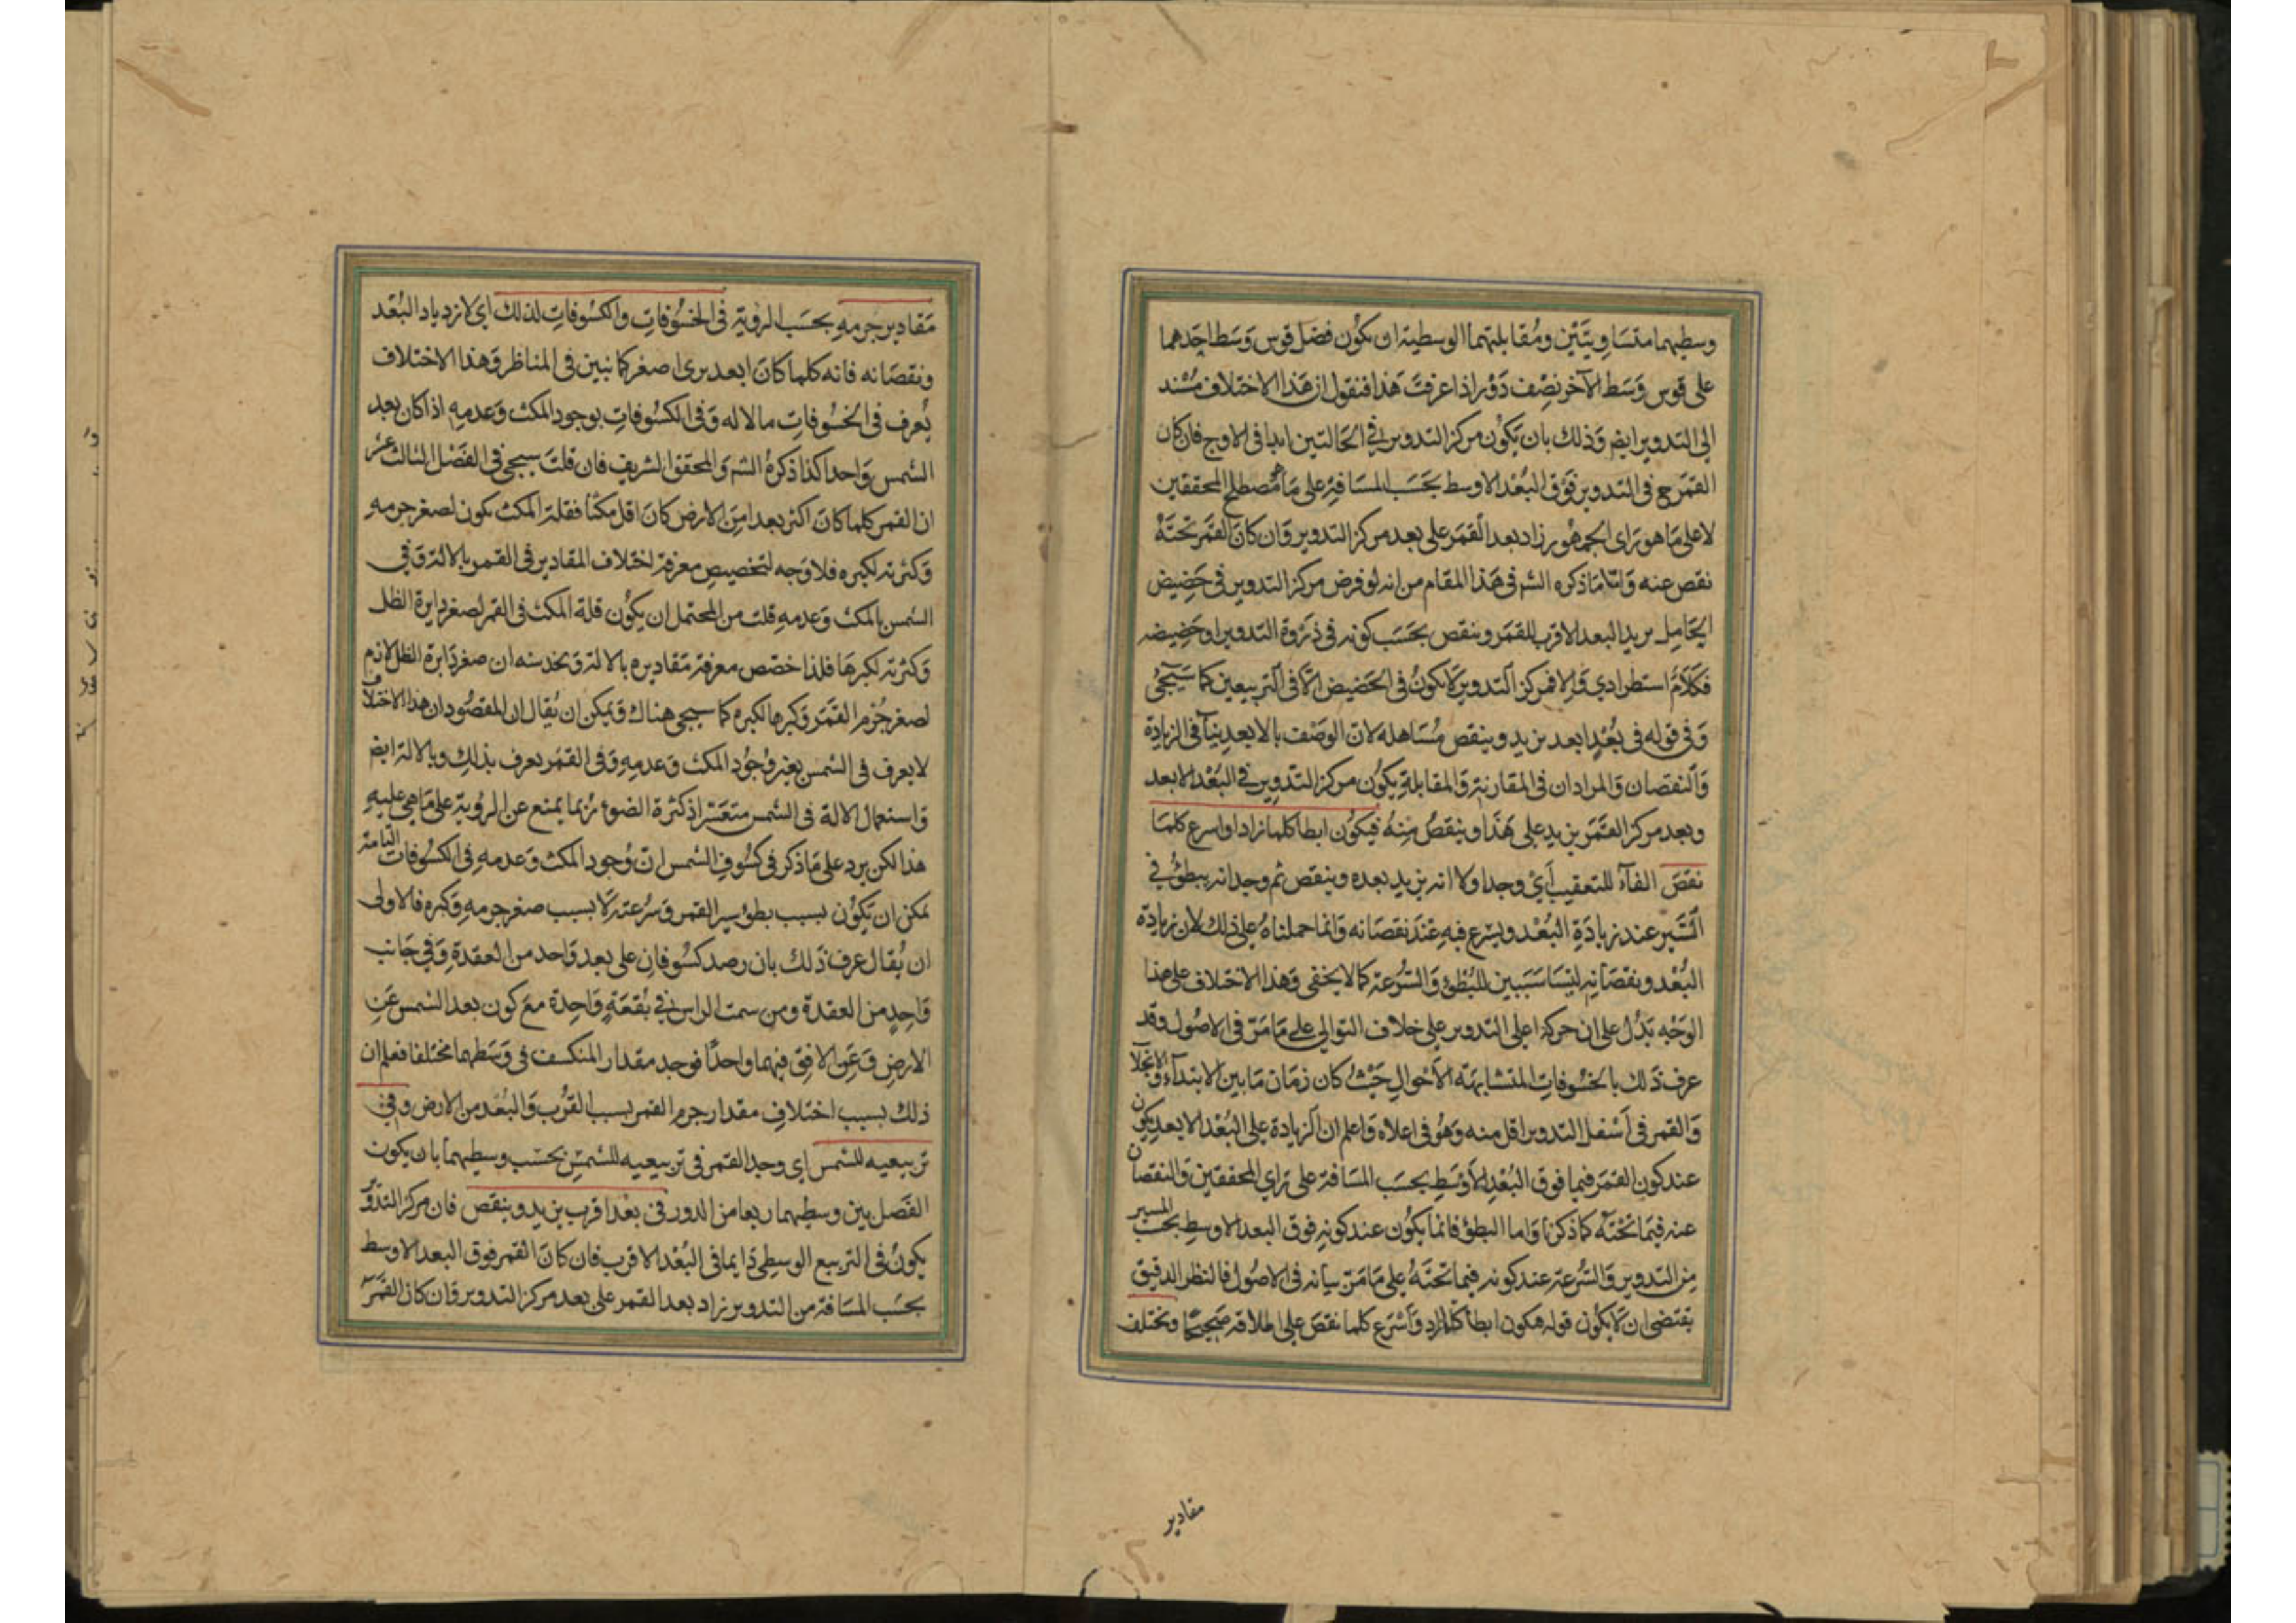 وسطيهما متساويتين ومقابلتهما الوسطية ان يكون فضل قوس وسط احدهما
على قوس وسط الآخر نصف دور اذا عرفت هذا فنقول ان هذا الاختلاف مسند
الى التدوير ايض وذلك بان يكون مركز التدوير في الحالتين ابدا في الاوج فان كان
القمر ح في التدوير فوق البعد الاوسط بحسب المسافة على ما هو مصطلح المحققين
لا على ما هو راى الجمهور زاد بعد القمر على بعد مركز التدوير وان كان القمر تحته
نقص عنه وامّا ما ذكره الشر في هذا المقام من انه لو فرض مركز التدوير في حضيض
الحامل يريد البعد الاقرب للقمر وينقص بحسب كونه في ذروة التدوير او حضيضه
فكلام استطرادي والا فمركز التدوير لا يكون في الحضيض الّا في التربيعين كما سيجئ
وفي قوله في بعد ابعد يزيد وينقص مساهله لان الوصف بالابعد ينافى الزيادة
والنقصان والمراد ان في المقارنة والمقابلة يكون مركز التدوير في البعد الابعد
وبعد مركز القمر يزيد على هذا وينقص منه فيكون ابطأ كلما زاد او اسرع كلما
نقص الفآء للتعقيب أي وجد اولا انه يزيد بعده وينقص ثم وجد انه يبطؤ في
السير عند زيادة البعد ويسرع فيه عند نقصانه وانما حملناه على ذلك لان زيادة
البعد ونقصانه ليسا سببين للبطؤ والسرعة كما لا يخفى وهذا الاختلاف على هذا
الوجه يدل على ان حركة اعلى التدوير على خلاف التوالى على ما مر في الاصول وقد
عرف ذلك بالخسوفات المتشابهة الأحوال حيث كان زمان ما بين الابتداء والانجلا
والقمر في أسفل التدوير اقل منه وهو في اعلاه واعلم ان الزيادة على البعد الابعد يكون
عند كون القمر فيما فوق البعد الاوسط بحسب المسافة على راي المحققين والنقصان
عنه فيما تحته كما ذكرنا واما البطؤ فانما يكون عند كونه فوق البعد الاوسط بحسب المسير
من التدوير والسرعة عند كونه فيما تحته على ما مر بيانه في الاصول فالنظر الدقيق
يقتضى ان لا يكون قوله فيكون ابطأ كلما زاد وأسرع كلما نقص على اطلاقه صحيحًا ويختلف
مقادير
مقادير جرمه بحسب الروية في الخسوفات والكسوفات لذلك اى لازدياد البعد
ونقصانه فانه كلما كان ابعد يرى اصغر كما تبين في المناظر وهذا الاختلاف
يعرف في الخسوفات مالاله وفي الكسوفات بوجود المكث وعدمه اذا كان بعد
الشمس واحدا كذا ذكره الشر والمحقق الشريف فان قلت سيجى في الفصل الثالث عشر
ان القمر كلما كان اكثر بعدا من الارض كان اقل مكثا فقلة المكث يكون لصغر جرمه
وكثرته لكبره فلا وجه لتخصيص معرفة اختلاف المقادير في القمر بالالة وفي
الشمس بالمكث وعدمه قلت من المحتمل ان يكون قلة المكث في القمر لصغر دايرة الظل
وكثرته لكبرها فلذا خصص معرفة مقاديره بالالة ويخدشه ان صغر دايرة الظل لازم
لصغر جرم القمر وكبرها لكبره كما سيجى هناك ويمكن ان يقال ان المقصود ان هذا الاختلاف
لا يعرف في الشمس بغير وجود المكث وعدمه وفي القمر يعرف بذلك وبالالة ايض
واستعمال الالة في الشمس متعسر اذ كثرة الضوء ربما يمنع عن الروية على ما هي عليه
هذا لكن يرد على ما ذكر في كسوف الشمس ان وجود المكث وعدمه في الكسوفات التامة
يمكن ان يكون بسبب بطؤ سير القمر وسرعته لا بسبب صغر جرمه وكبره فالاولى
ان يقال عرف ذلك بان رصد كسوفان على بعد واحد من العقدة وفي جانب
واحد من العقدة ومن سمت الراس في بقعة واحدة مع كون بعد الشمس عن
الارض وعن الافق فيهما واحدًا فوجد مقدار المنكسف في وسطهما مختلفا فعلم ان
ذلك بسبب اختلاف مقدار جرم القمر بسبب القرب والبعد من الارض وفي
تربيعيه للشمس اى وجد القمر في تربيعيه للشمس بحسب وسطيهما بان يكون
الفصل بين وسطيهما ربعا من الدور في بعد اقرب يزيد وينقص فان مركز التدوير
يكون في التربيع الوسطى دايما في البعد الاقرب فان كان القمر فوق البعد الاوسط
بحسب المسافة من التدوير زاد بعد القمر على بعد مركز التدوير وان كان القمر